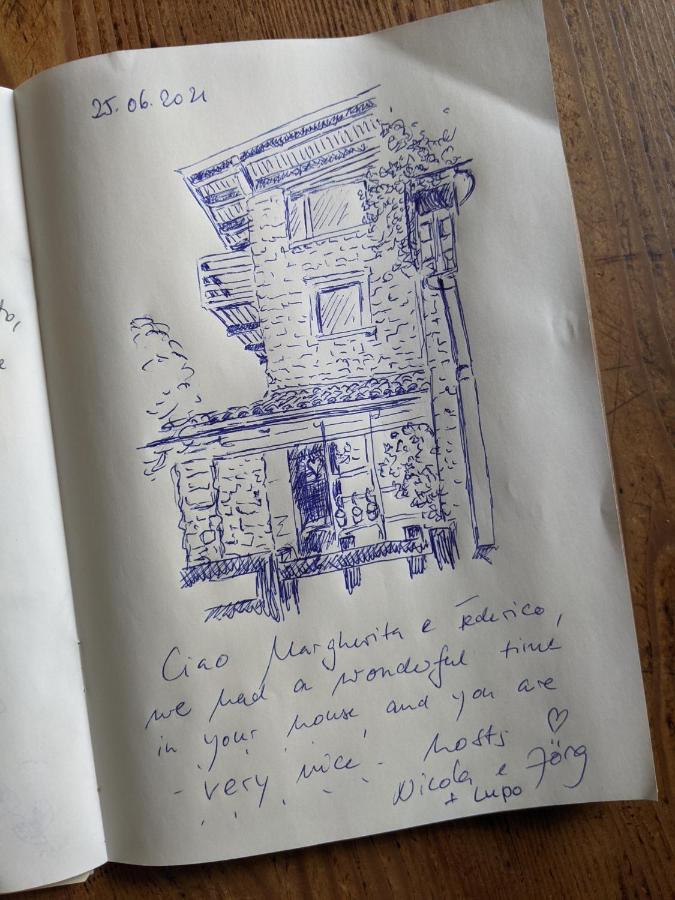 25.06.2021
Ciao Margherita e Federico,
we had a wonderful time
in your house and you are
very nice hosts ♡
Nicola e Jörg
+ Lupo